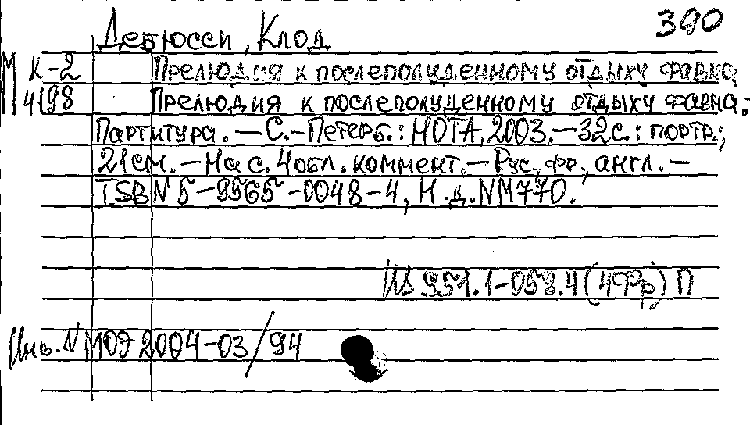 390
Дебюсси, Клод
М К-2 Прелюдия к послеполуденному отдыху фавна
4198 Прелюдия к послеполуденному отдыху фавна:
Партитура. — С.-Петерб.: НОТА, 2003. — 32 с.: портр.;
21 см. — На с. 4 обл. коммент. — Рус., фр., англ. —
ISBN 5-9565-0048-4, Н.д. NM770.
951.1-058.4(4Фр) П
Инв. N МОЭ 2004-03/94